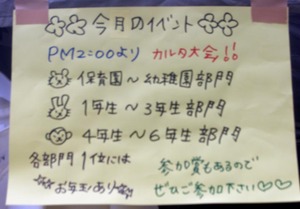 今月のイベント
PM2:00より カルタ大会!!
保育園～幼稚園部門
1年生～3年生部門
4年生～6年生部門
各部門1位には
お年玉あり
参加賞もあるので
ぜひご参加下さい♡♡